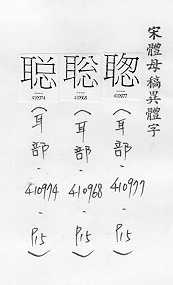 宋體母稿異體字
聦
410977
（耳部-410977-P15）
聡
410968
（耳部-410968-P15）
聪
410974
（耳部-410974-P15）